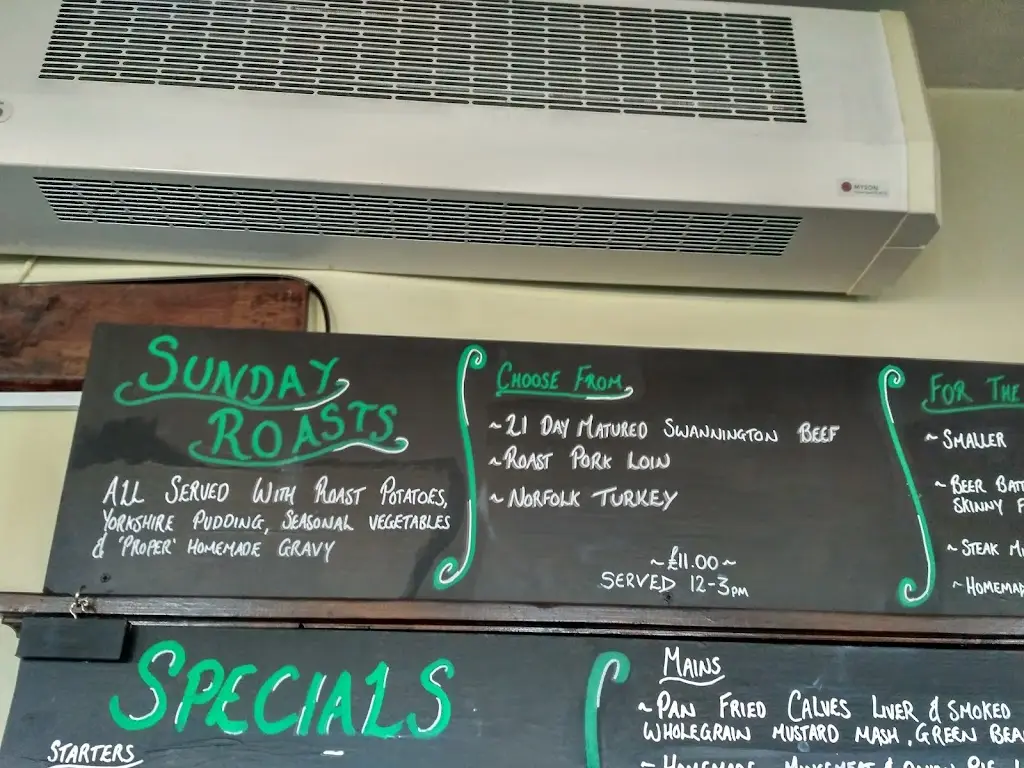 MYSON
SUNDAY
ROASTS
ALL SERVED WITH ROAST POTATOES,
YORKSHIRE PUDDING, SEASONAL VEGETABLES
& 'PROPER' HOMEMADE GRAVY
CHOOSE FROM
~ 21 DAY MATURED SWANNINGTON BEEF
~ ROAST PORK LOIN
~ NORFOLK TURKEY
~ £11.00 ~
SERVED 12-3PM
FOR THE
~ SMALLER
~ BEER BATT
SKINNY F
~ STEAK M
~ HOMEMAD
SPECIALS
STARTERS
MAINS
~ PAN FRIED CALVES LIVER & SMOKED
WHOLEGRAIN MUSTARD MASH, GREEN BEA
~ HOMEMADE MINCEMEAT & ONION PIE